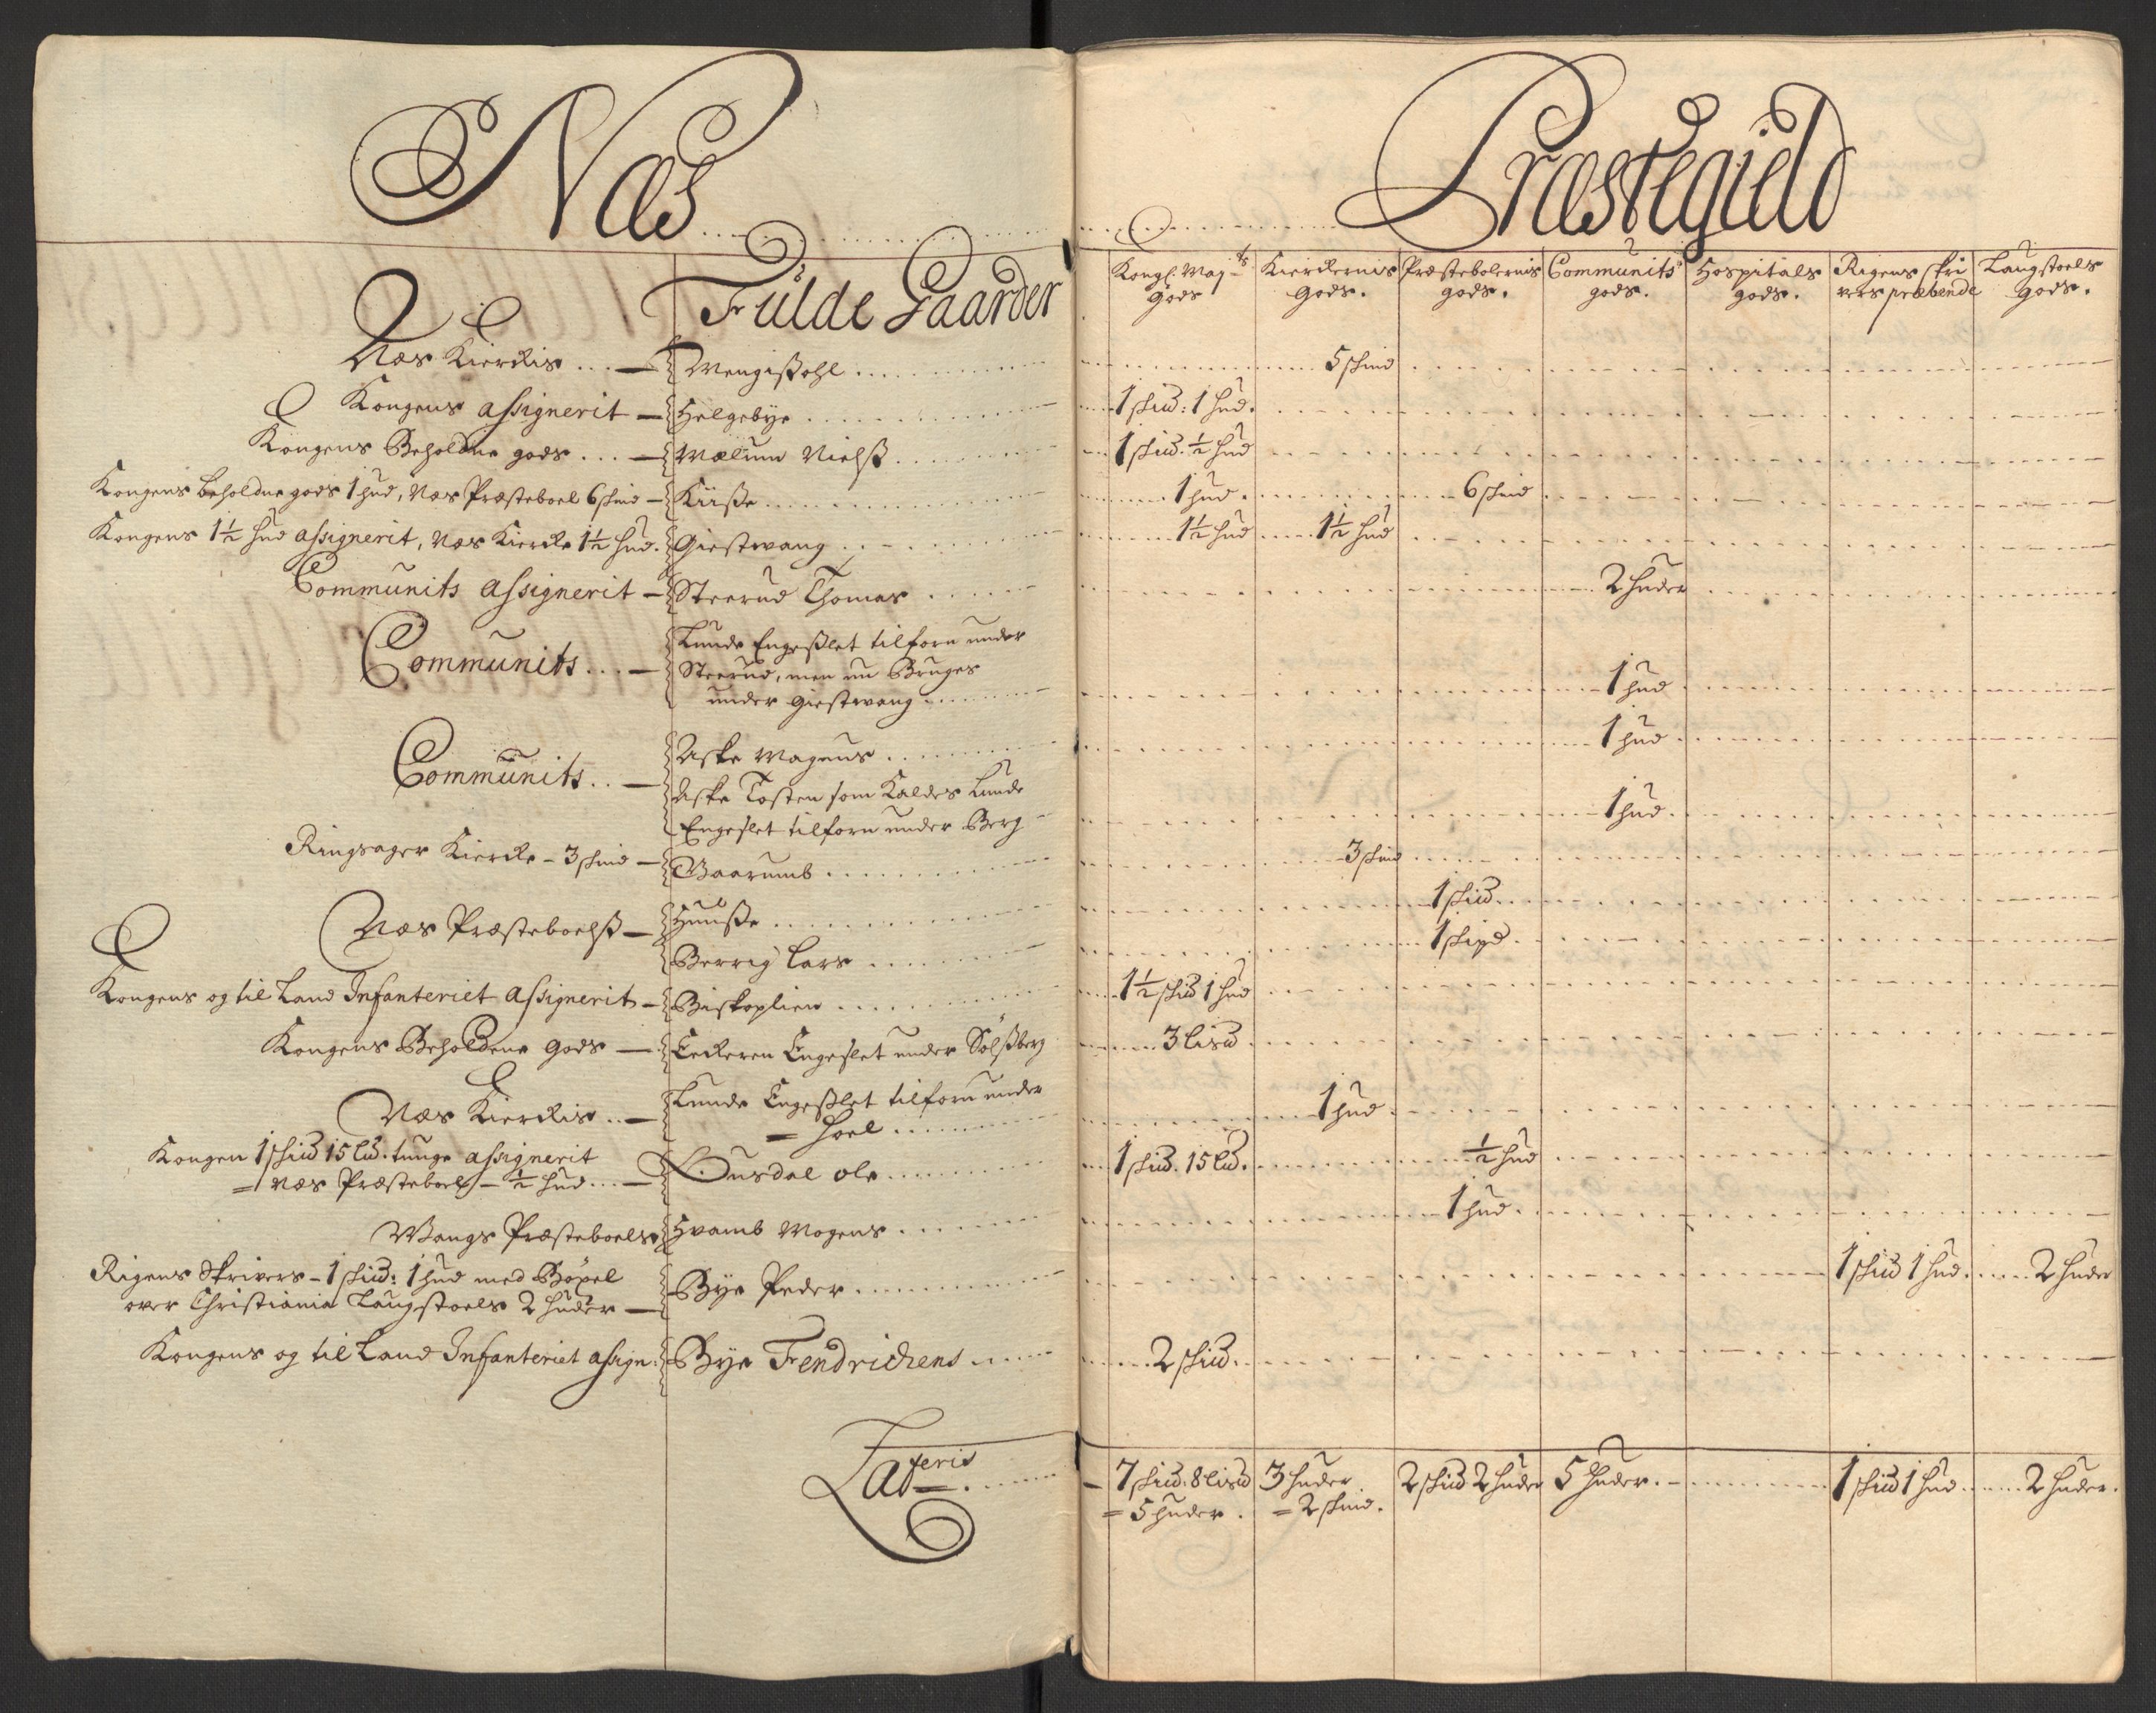 Næs
Præstegield
Fulde Gaarder
Kongl: Maj:ts gods
Kierckernis gods.
Præstebolernis gods.
Communits gods.
Hospitals gods.
Rigens skrivers præbende
Laugstoels gods.
Næs Kierckis ... — Mengißohl ... 5 skind
Kongens assignerit — Helgebye ... 1 skud: 1 hud.
Kongens Beholdne gods ... — Mælum Nielß ... 1 skud. ½ hud
Kongens beholdne gods 1 hud, Næs Præsteboel 6 skind — Kiiße ... 1 hud. ... 6 skind
Kongens 1½ hud assignerit, Næs Kiercke 1½ hud. Giestvang ... 1½ hud ... 1½ hud
Communits assignerit — Steerud Thomas ... 2 huder
Communits ... — Lunde Engeßlet tilforn under
Steerud, men nu Bruges
under Giestvang ... 1 hud
Communits .. — Aske Magnus ... 1 hud
Aske Tosten som Kaldes Lunde
Engeslet tilforn under Berg ... 1 hud.
Ringsager Kiercke - 3 skind — Baarumb ... 3 skind
Næs Præsteboelß — Huuße ... 1 skud.
Berrig Lars ... 1 skpd.
Kongens og til Land Infanteriet assignerit — Biskoplien ... 1½ skud 1 hud
Kongens Beholdene gods — Eckeren Engeslet under Sölßberg ... 3 lisd
Næs Kierckis .. — Lunde Engeßlet tilforn under
= Hoel ... 1 hud
Kongen 1 skud 15 ld. tunge assignerit
= Næs Præsteboel - ½ hud ... — Ousdal ole ... 1 skud. 15 ld. ... ½ hud
Wangs Præsteboels Hvamb Mogens ... 1 hud.
Rigens Skrivers - 1 skud: 1 hud med Böxel
over Christiania Laugstoels 2 huder — Bye Peder ... 1 skud 1 hud. ... 2 huder
Kongens og til Land Infanteriet assign: Bye Fendrichens ... 2 skud.
Lateris ... 7 skud: 8 lisd = 5 huder. 3 huder = 2 skind. 2 skud 2 huder 5 huder. - ... 1 skud 1 hud ... 2 huder.